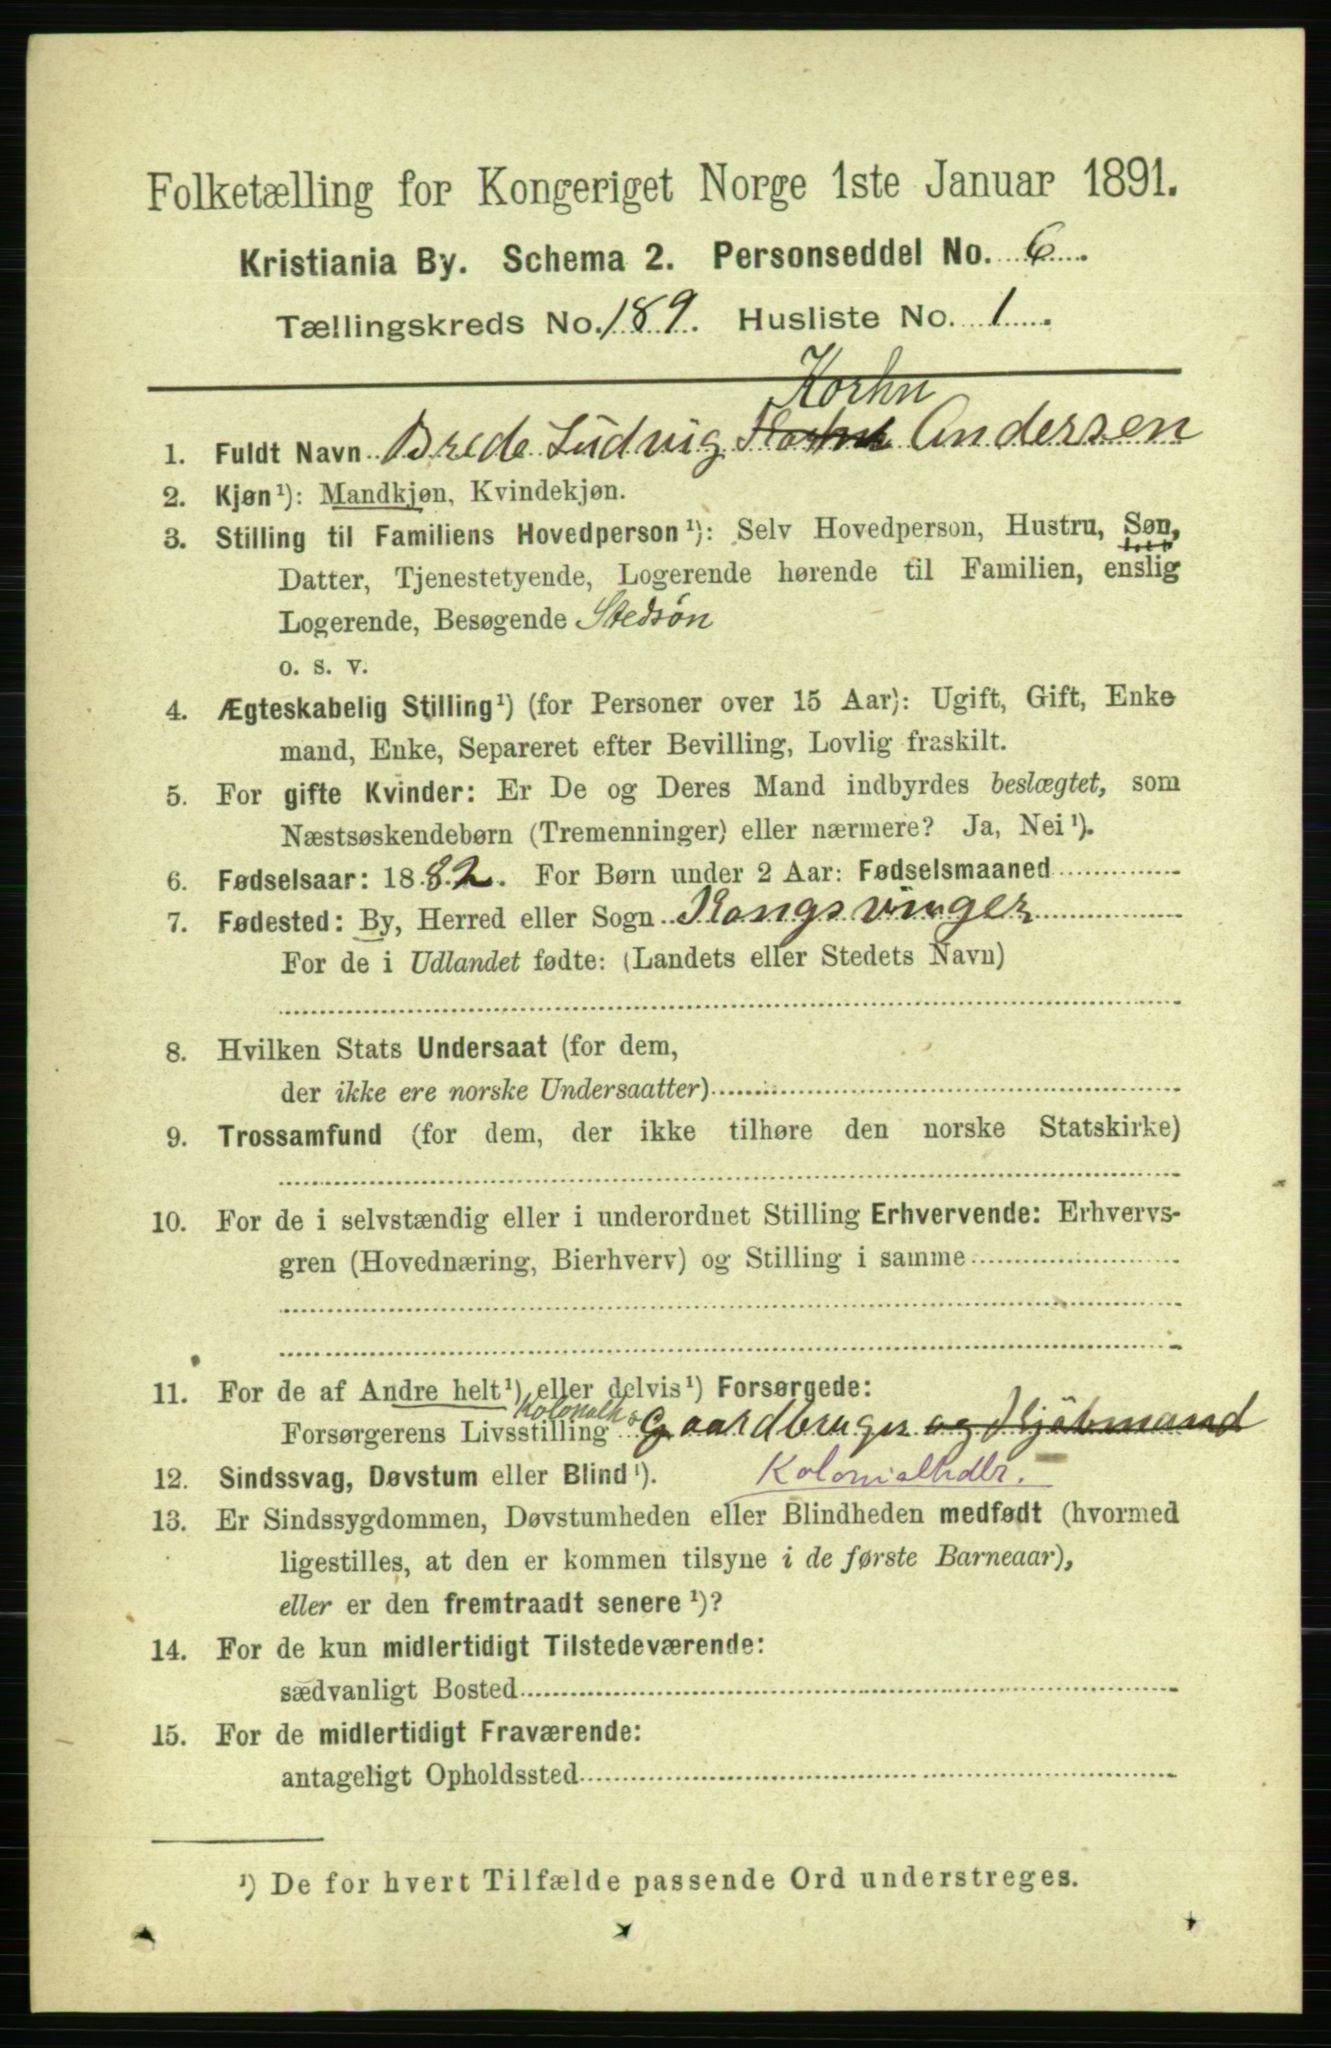 Folketælling for Kongeriget Norge 1ste Januar 1891.
Kristiania By. Schema 2. Personseddel No. 6.
Tællingskreds No. 189. Husliste No. 1.
Korhn
1. Fuldt Navn Brede Ludvig Korhn Andersen
2. Kjøn¹): Mandkjøn, Kvindekjøn.
3. Stilling til Familiens Hovedperson¹): Selv Hovedperson, Hustru, Søn,
Datter, Tjenestetyende, Logerende hørende til Familien, enslig
Logerende, Besøgende Stedsøn
o. s. v.
4. Ægteskabelig Stilling¹) (for Personer over 15 Aar): Ugift, Gift, Enke
mand, Enke, Separeret efter Bevilling, Lovlig fraskilt.
5. For gifte Kvinder: Er De og Deres Mand indbyrdes beslægtet, som
Næstsøskendebørn (Tremenninger) eller nærmere? Ja, Nei¹).
6. Fødselsaar: 1882. For Børn under 2 Aar: Fødselsmaaned
7. Fødested: By, Herred eller Sogn Kongsvinger
For de i Udlandet fødte: (Landets eller Stedets Navn)
8. Hvilken Stats Undersaat (for dem,
der ikke ere norske Undersaatter)
9. Trossamfund (for dem, der ikke tilhøre den norske Statskirke)
10. For de i selvstændig eller i underordnet Stilling Erhvervende: Erhvervs-
gren (Hovednæring, Bierhverv) og Stilling i samme
11. For de af Andre helt¹) eller delvis¹) Forsørgede:
Kolonialh
Forsørgerens Livsstilling Gaardbruger og Kjøbmand
12. Sindssvag, Døvstum eller Blind¹). Kolonialhdlr.
13. Er Sindssygdommen, Døvstumheden eller Blindheden medfødt (hvormed
ligestilles, at den er kommen tilsyne i de første Barneaar),
eller er den fremtraadt senere¹)?
14. For de kun midlertidigt Tilstedeværende:
sædvanligt Bosted
15. For de midlertidigt Fraværende:
antageligt Opholdssted
¹) De for hvert Tilfælde passende Ord understreges.